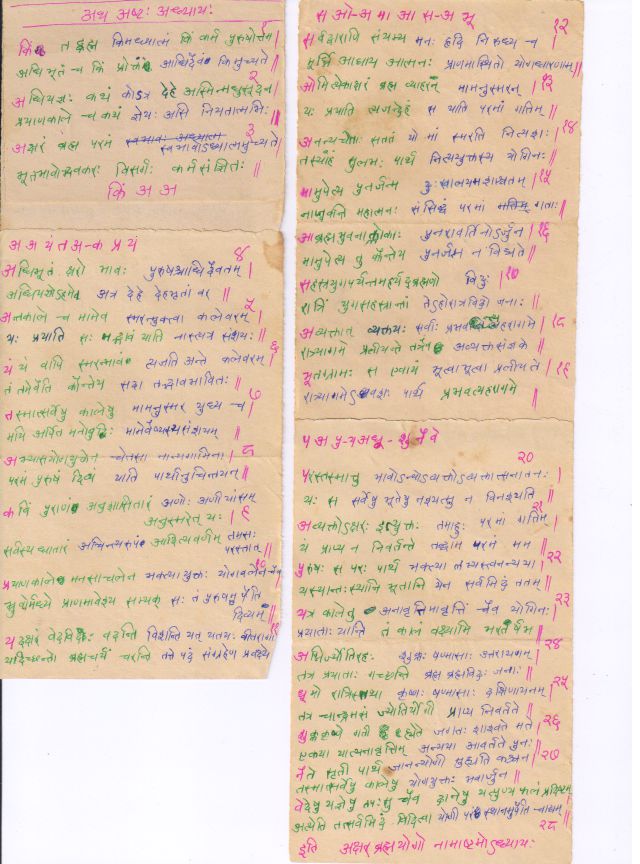 अथ अष्टः अध्यायः
किं तद्ब्रह्म किमध्यात्मं किं कर्म पुरुषोत्तम १
अधिभूतं च किं प्रोक्तं अधिदैवं किमुच्यते ||
अधियज्ञः कथं कोऽत्र देहे अस्मिन्मधुसूदन २
प्रयाणकाले च कथं ज्ञेयः असि नियतात्मभिः ||
अक्षरं ब्रह्म परमं स्वभावोऽध्यात्ममुच्यते ३
भूतभावोद्भवकरः विसर्गः कर्मसंज्ञितः ||
किं अ अ
अ अ यं त अ-क प्र यं
अधिभूतं क्षरो भावः पुरुषश्चाधिदैवतम् | ४
अधियज्ञोऽहमेव अत्र देहे देहभृतां वर ||
अन्तकाले च मामेव स्मरन्मुक्त्वा कलेवरम् | ५
यः प्रयाति सः मद्भावं याति नास्त्यत्र संशयः ||
यं यं वापि स्मरन्भावं त्यजति अन्ते कलेवरम् | ६
तं तमेवैति कौन्तेय सदा तद्भावभावितः ||
तस्मात्सर्वेषु कालेषु मामनुस्मर युध्य च ७
मयि अर्पित मनोबुद्धिः मामेवैष्यस्यसंशयम् ||
अभ्यासयोगयुक्तेन चेतसा नान्यगामिना | ८
परमं पुरुषं दिव्यं याति पार्थानुचिन्तयन् ||
कविं पुराणं अनुशासितारं अणोः अणीयांसम्
अनुस्मरेत् यः | ९
सर्वस्य धातारं अचिन्त्यरूपं आदित्यवर्णम् तमसः
परस्तात् ||
प्रयाणकाले मनसाचलेन भक्त्या युक्तः योगबलेन चैव १०
भ्रुवोर्मध्ये प्राणमावेश्य सम्यक् सः तं पुरुषमुपैति
दिव्यम् ||
यदक्षरं वेदविदः वदन्ति विशन्ति यत् यतयः वीतरागाः ११
यदिच्छन्तो ब्रह्मचर्यं चरन्ति तत्ते पदं संग्रहेण प्रवक्ष्ये
स ओ-अ मा आ स-अ भू
सर्वद्वाराणि संयम्य मनः हृदि निरुध्य च | १२
मूर्ध्नि आधाय आत्मनः प्राणमास्थितो योगधारणाम् ||
ओमित्येकाक्षरं ब्रह्म व्याहरन् मामनुस्मरन् | १३
यः प्रयाति त्यजन्देहं स याति परमां गतिम् ||
अनन्यचेताः सततं यो मां स्मरति नित्यशः | १४
तस्याहं सुलभः पार्थ नित्ययुक्तस्य योगिनः ||
मामुपेत्य पुनर्जन्म दुःखालयमशाश्वतम् | १५
नाप्नुवन्ति महात्मनः संसिद्धिं परमां गताः ||
आब्रह्मभुवनाल्लोकाः पुनरावर्तिनोऽर्जुन | १६
मामुपेत्य तु कौन्तेय पुनर्जन्म न विद्यते ||
सहस्रयुगपर्यन्तमहर्यद्ब्रह्मणो विदुः | १७
रात्रिं युगसहस्रान्तां तेऽहोरात्रविदो जनाः ||
अव्यक्तात् व्यक्तयः सर्वाः प्रभवन्त्यहरागमे | १८
रात्र्यागमे प्रलीयन्ते तत्रैव अव्यक्तसंज्ञके ||
भूतग्रामः स एवायं भूत्वा भूत्वा प्रलीयते | १९
रात्र्यागमेऽवशः पार्थ प्रभवत्यहरागमे ||
प अ पु-य अधू - शु नै वे
परस्तस्मात्तु भावोऽन्योऽव्यक्तोऽव्यक्तात्सनातनः | २०
यः स सर्वेषु भूतेषु नश्यत्सु न विनश्यति ||
अव्यक्तोऽक्षरः इत्युक्तः तमाहुः परमां गतिम् | २१
यं प्राप्य न निवर्तन्ते तद्धाम परमं मम ||
पुरुषः स परः पार्थ भक्त्या लभ्यस्त्वनन्यया | २२
यस्यान्तःस्थानि भूतानि येन सर्वमिदं ततम् ||
यत्र काले तु अनावृत्तिमावृत्तिं चैव योगिनः | २३
प्रयाताः यान्ति तं कालं वक्ष्यामि भरतर्षभ ||
अग्निर्ज्योतिरहः शुक्लः षण्मासाः उत्तरायणम् | २४
तत्र प्रयाताः गच्छन्ति ब्रह्म ब्रह्मविदः जनाः ||
धूमो रात्रिस्तथा कृष्णः षण्मासाः दक्षिणायनम् | २५
तत्र चान्द्रमसं ज्योतिर्योगी प्राप्य निवर्तते ||
शुक्लकृष्णे गती ह्येते जगतः शाश्वते मते | २६
एकया यात्यनावृत्तिम् अन्यया आवर्तते पुनः ||
नैते सृती पार्थ जानन्योगी मुह्यति कश्चन | २७
तस्मात्सर्वेषु कालेषु योगयुक्तः भवार्जुन ||
वेदेषु यज्ञेषु तपःसु चैव दानेषु यत्पुण्यफलं प्रदिष्टम् |
अत्येति तत्सर्वमिदं विदित्वा योगी परं स्थानमुपैति चाद्यम् || २८
इति अक्षरब्रह्मयोगो नामाष्टमोऽध्यायः